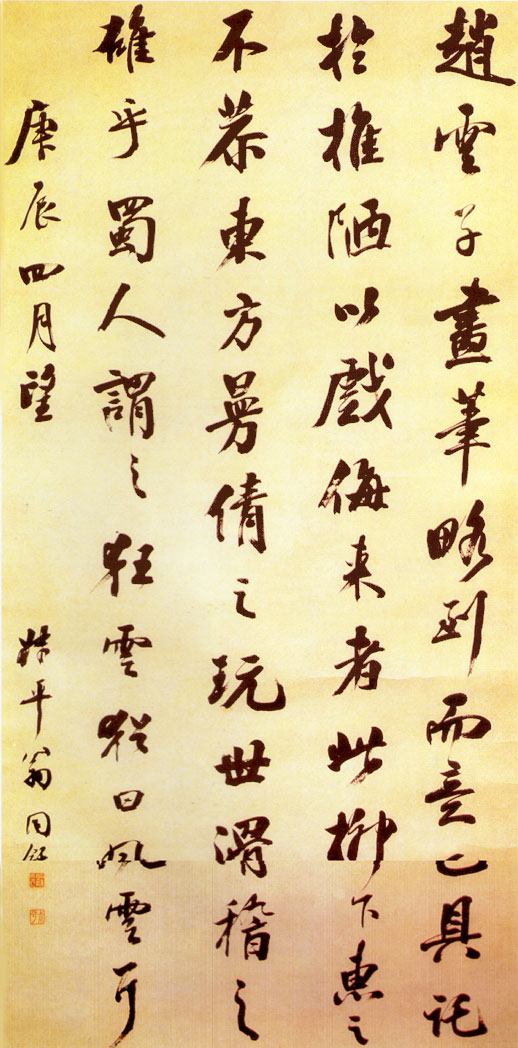 趙雲子畫筆略到而意已具託
於椎陋以戲侮来者此柳下惠之
不恭東方曼倩之玩世滑稽之
雄乎蜀人謂之狂雲猶曰風雲耳
庚辰四月望
姊平翁同龢